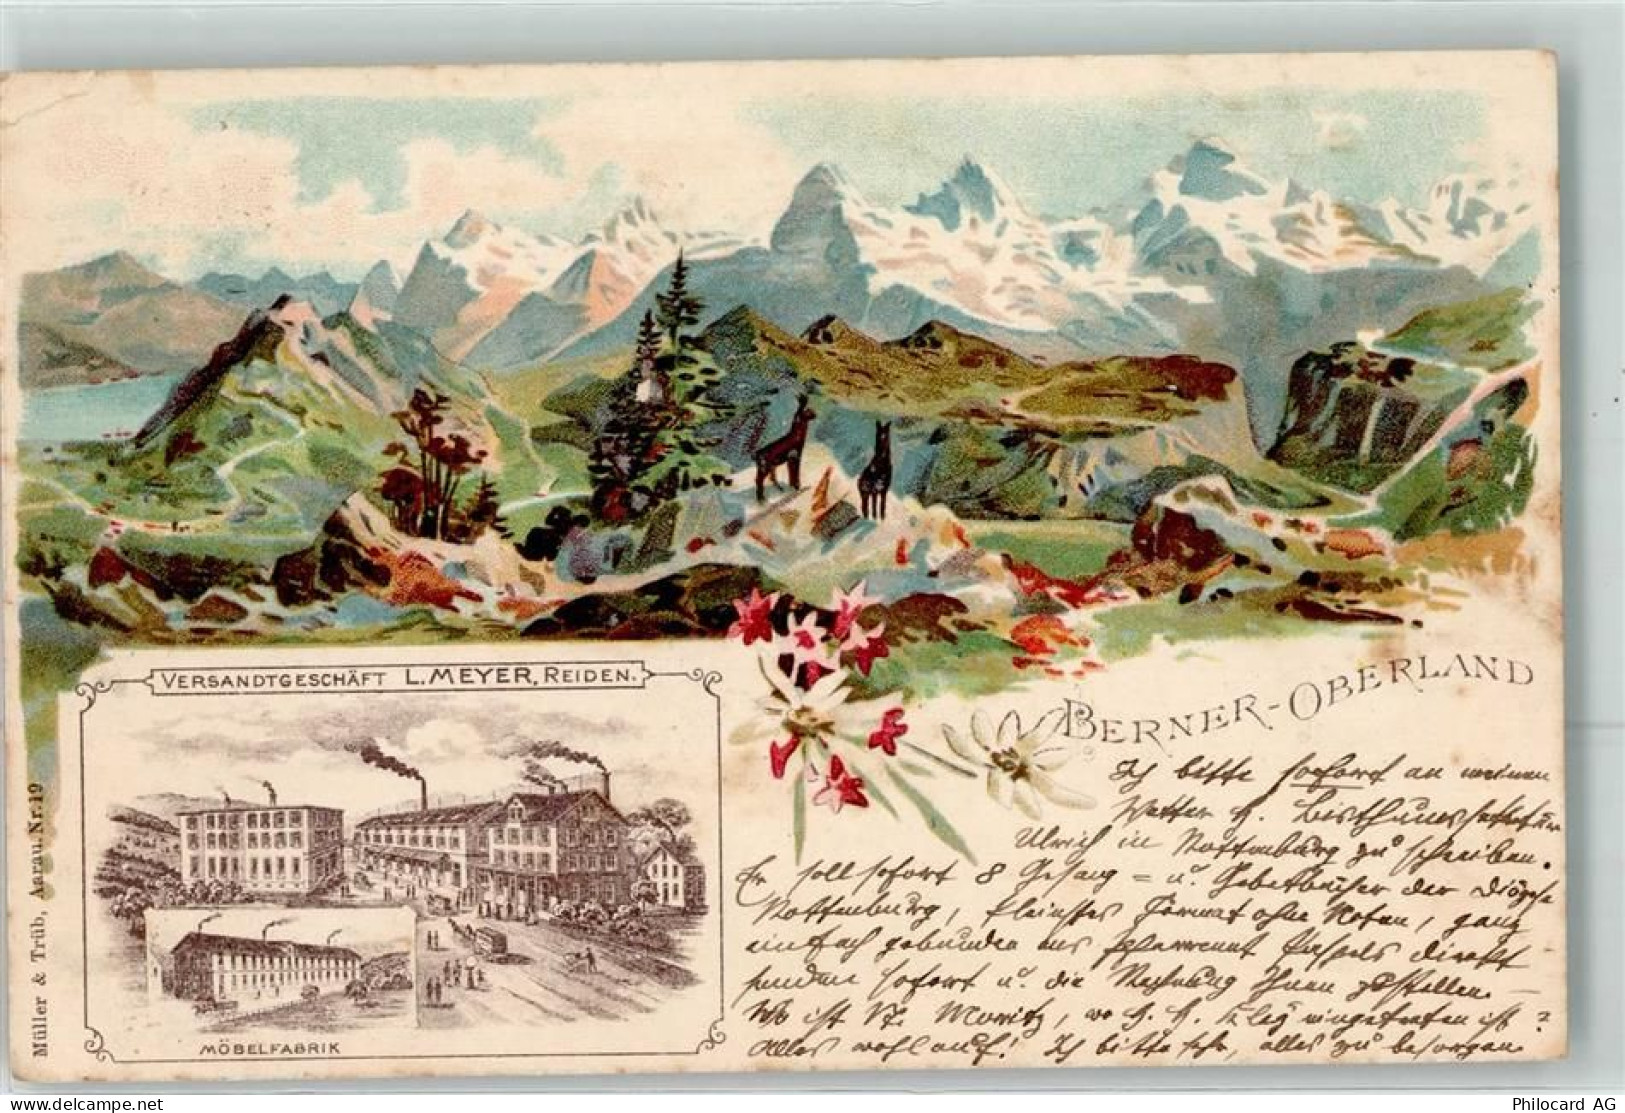 VERSANDTGESCHÄFT L. MEYER, REIDEN.
MÖBELFABRIK
Müller & Trüb, Aarau. Nr. 19
BERNER-OBERLAND
Ich bitte sofort an meinen
Vetter H. Bisthumssekretär
Ulrich in Rottenburg zu schreiben.
Er soll sofort 8 Gesang = u. Gebetbücher der Diözese
Rottenburg, kleinstes Format ohne Noten, ganz
einfach gebunden ans Pfarramt Cassels direkt
senden sofort u. die Rechnung Ihnen zustellen. -
Wo ist St. Moritz, wo H. H. eingetreten ist?
Alles wohlauf! Ich bitte sehr, alles zu besorgen.
Philocard AG
www.delcampe.net